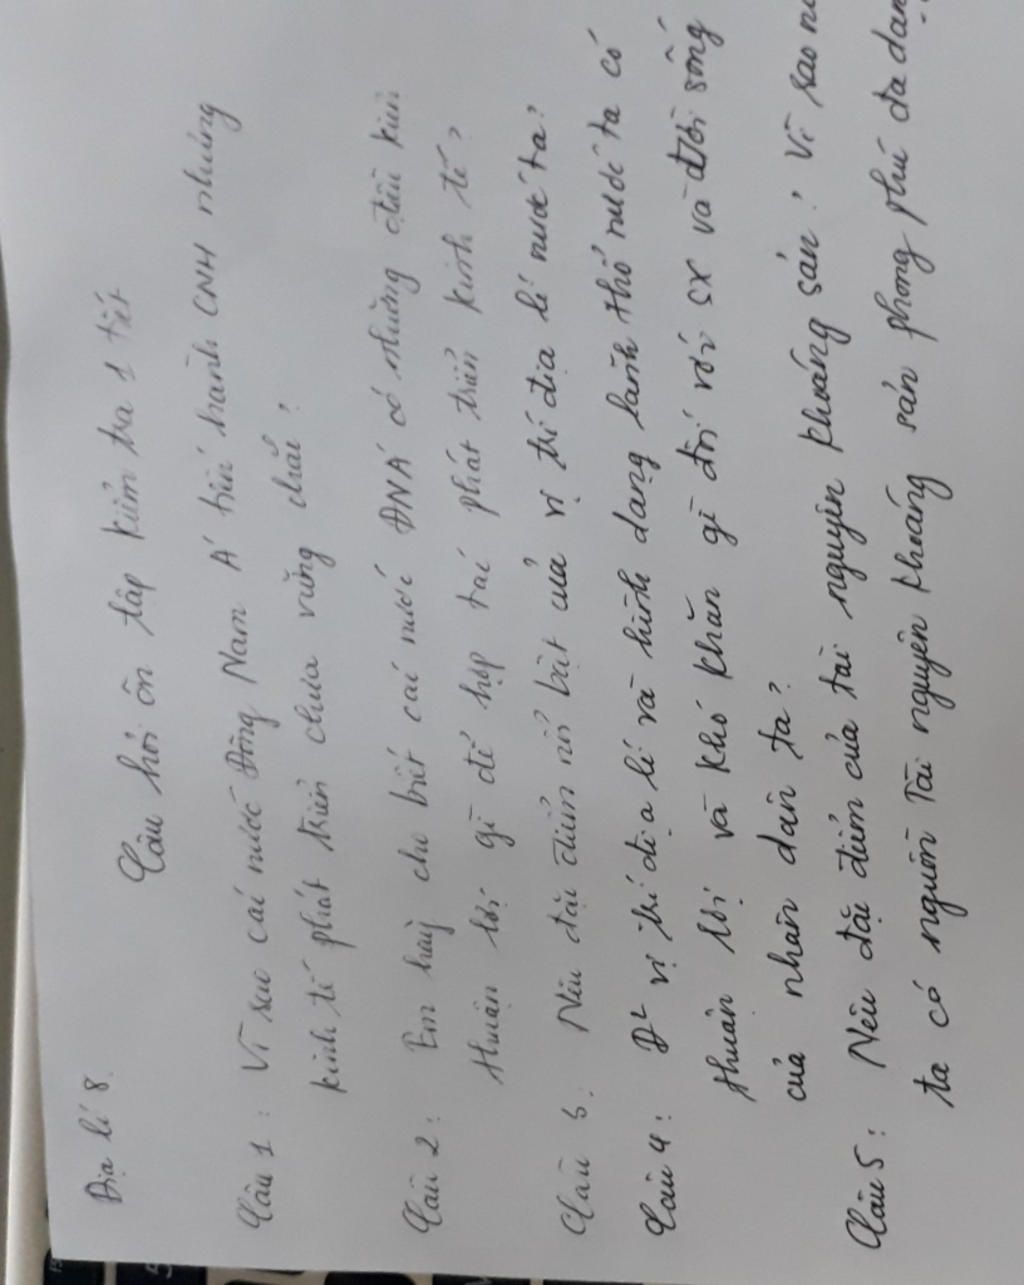 Địa lí 8
Câu hỏi ôn tập kiểm tra 1 tiết
Câu 1: Vì sao các nước Đông Nam Á tiến hành CNH nhưng
kinh tế phát triển chưa vững chắc?
Câu 2: Em hãy cho biết các nước ĐNÁ có những điều kiện
thuận lợi gì để hợp tác phát triển kinh tế?
Câu 3: Nêu đặc điểm nổi bật của vị trí địa lí nước ta?
Câu 4: Đ² vị trí địa lí và hình dạng lãnh thổ nước ta có
thuận lợi và khó khăn gì đối với sx và đời sống
của nhân dân ta?
Câu 5: Nêu đặc điểm của tài nguyên khoáng sản? Vì sao
ta có nguồn Tài nguyên khoáng sản phong phú đa dạng